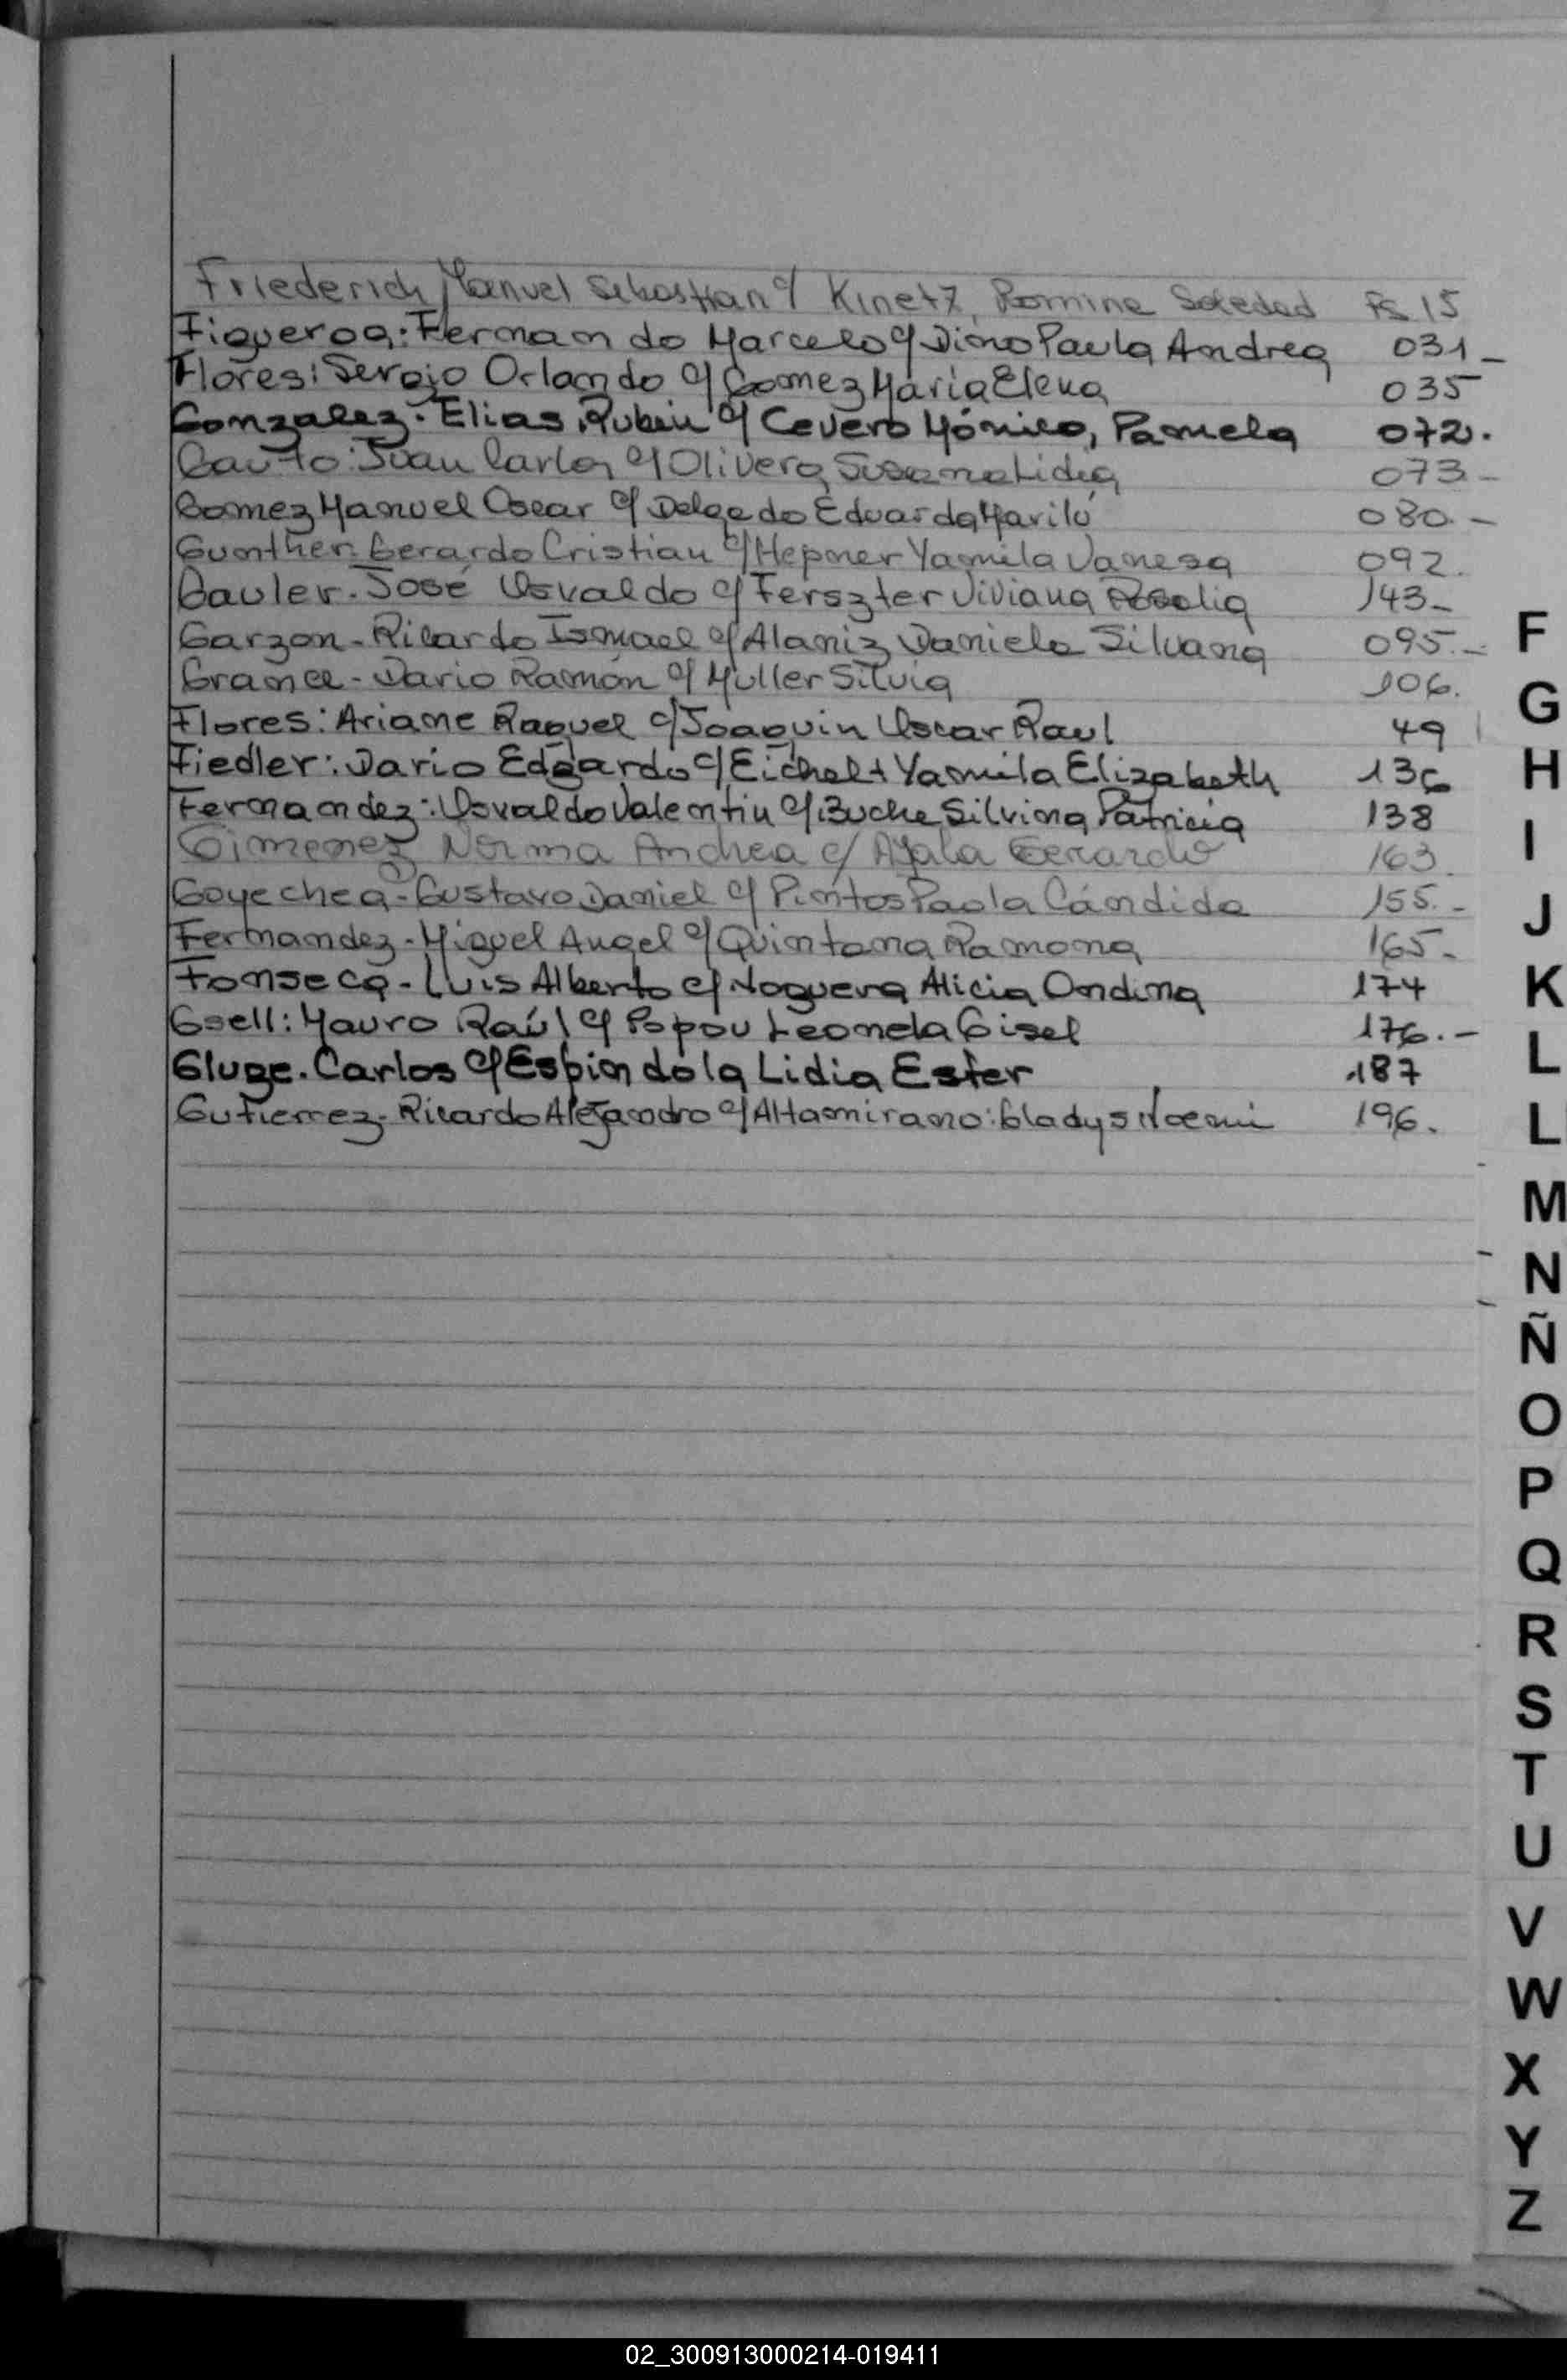 Friederich Manuel Sebastian c/ Kinetz, Romina Soledad Fs 15
Figueroa: Fernando Marcelo c/ Dino Paula Andrea 031 -
Flores: Sergio Orlando c/ Gomez Maria Elena 035
Gonzalez. Elias Ruben c/ Cevero Mónica, Pamela 072.
Gauto: Juan Carlos c/ Olivera Susana Lidia 073 -
Gomez Manuel Oscar c/ Delgado Eduarda Marilú 080. -
Gunther. Gerardo Cristian c/ Hepner Yamila Vanesa 092.
Gauler. José Osvaldo c/ Ferszter Viviana Rosalia 143 -
Garzon - Ricardo Ismael c/ Alaniz Daniela Silvana 095. -
Grance - Dario Ramón c/ Muller Silvia 106.
Flores: Ariane Raquel c/ Joaquin Oscar Raul 49
Fiedler: Dario Edgardo c/ Eichelt Yamila Elizabeth 136
Fernandez: Osvaldo Valentin c/ Buche Silvina Patricia 138
Gimenez Norma Andrea c/ Ayala Gerardo 163.
Goyechea - Gustavo Daniel c/ Pintos Paola Cándida 155. -
Fernandez - Miguel Angel c/ Quintana Ramona 165 -
Fonseca - Luis Alberto c/ Noguera Alicia Ondina 174
Gsell: Mauro Raúl c/ Popou Leonela Gisel 176. -
Gluge. Carlos c/ Espindola Lidia Ester 187
Gutierrez - Ricardo Alejandro c/ Altamirano: Gladys Noemi 196.
F
G
H
I
J
K
L
L
M
N
Ñ
O
P
Q
R
S
T
U
V
W
X
Y
Z
02_300913000214-019411